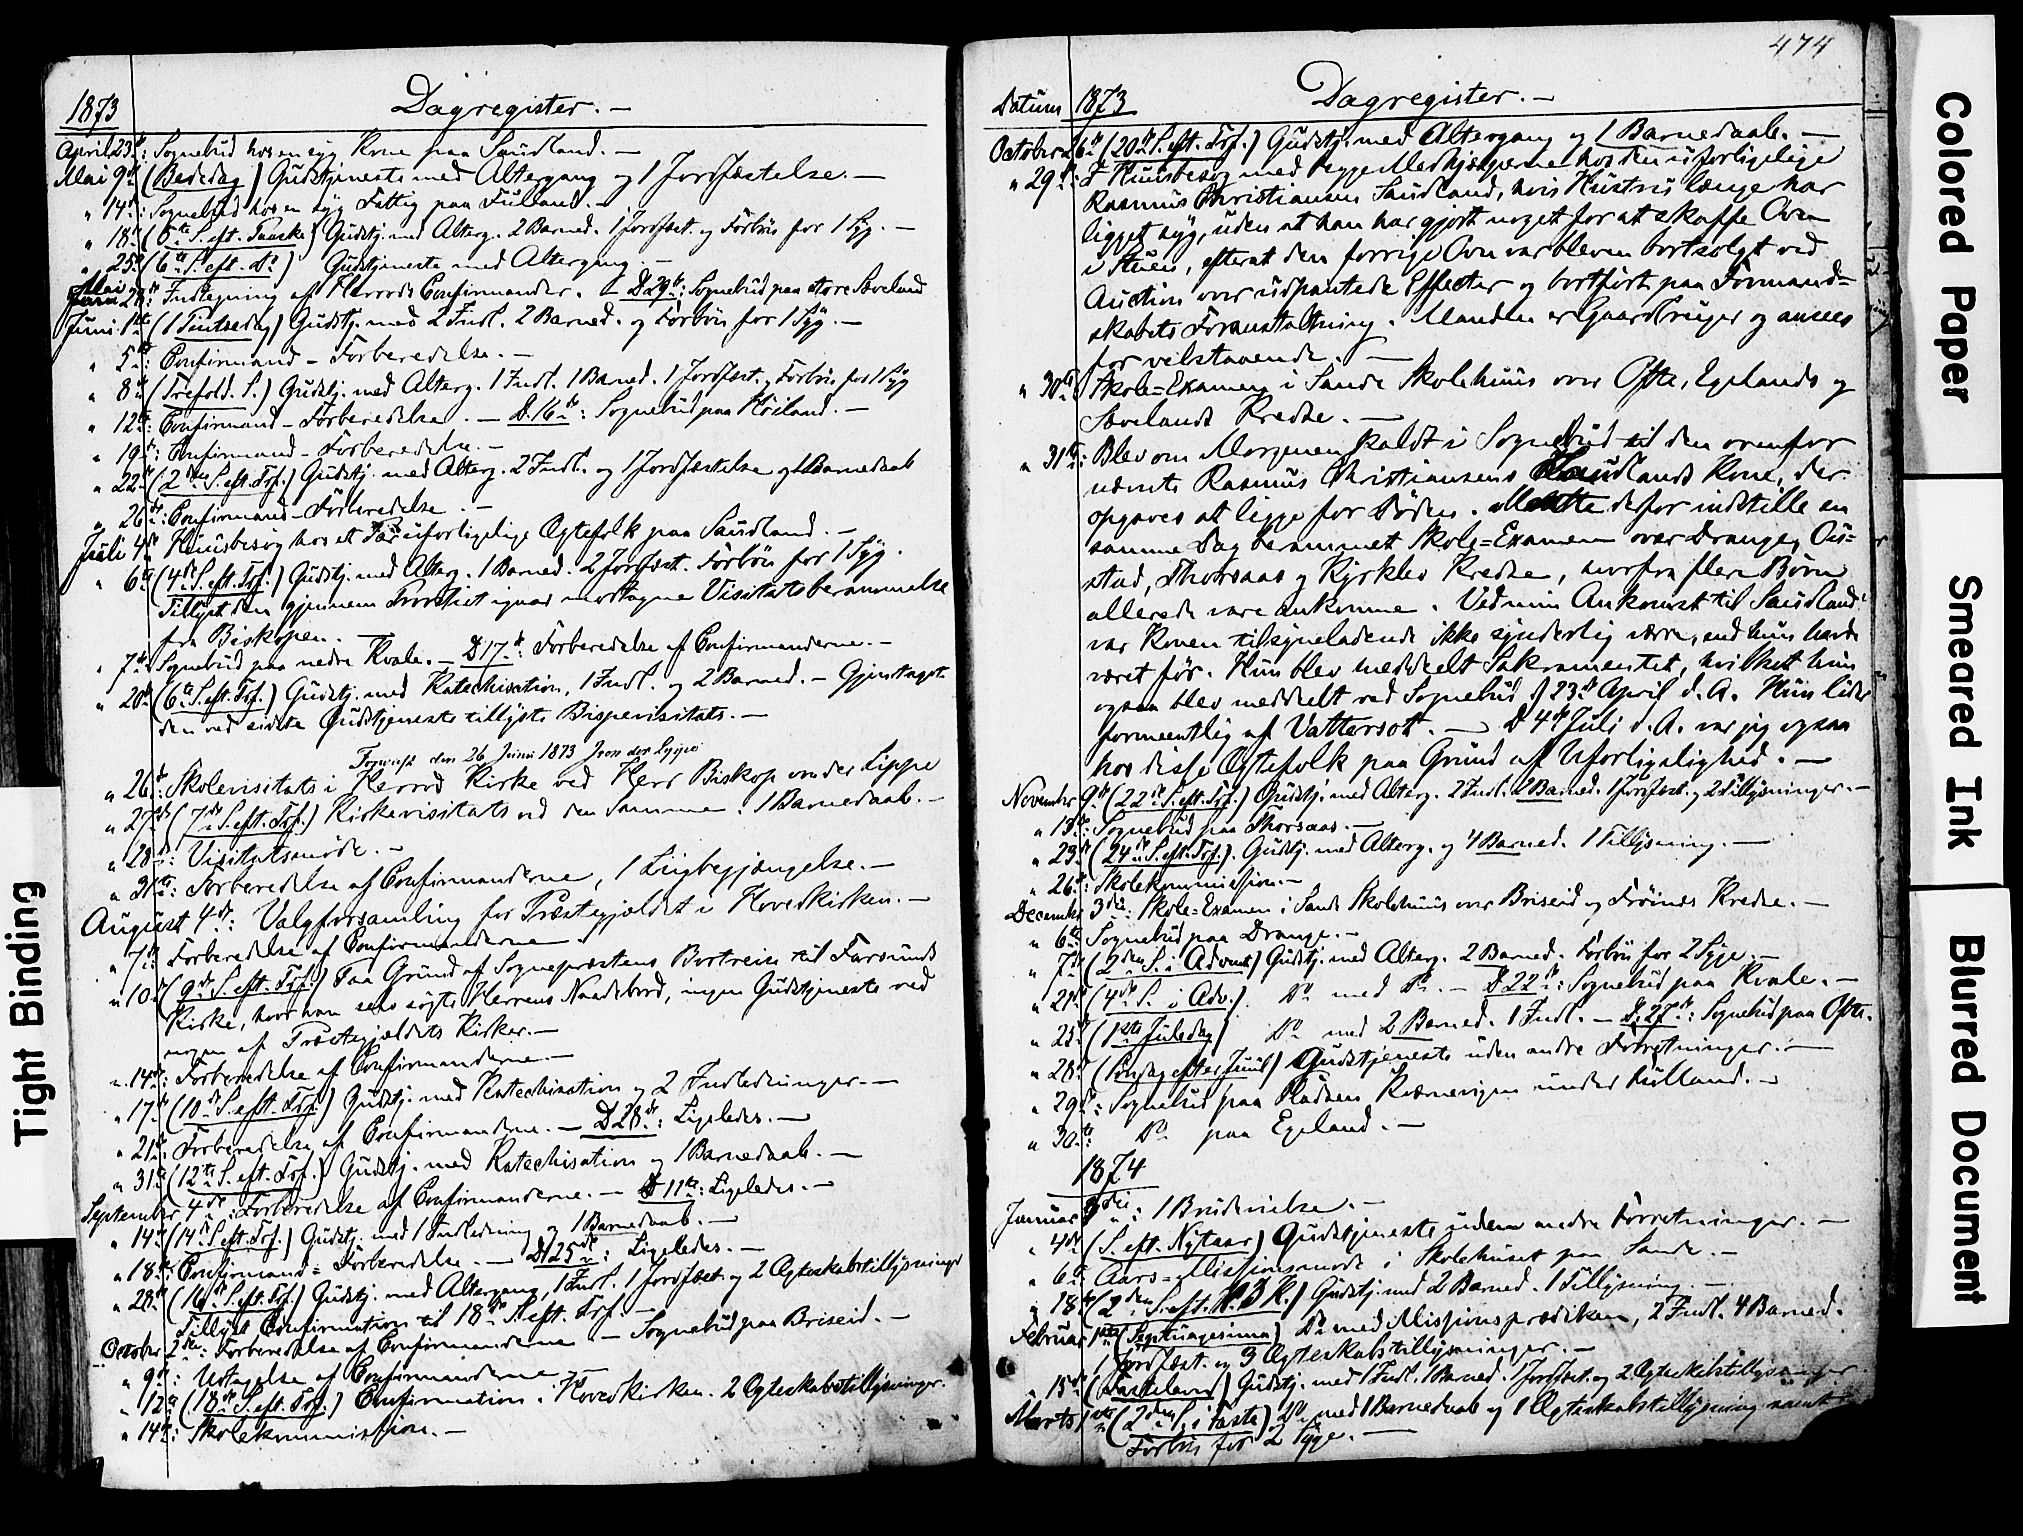 474
1873 Dagregister. —
April 23de: Sognebud hos en syg Kone paa Saudland. —
Mai 9de (Bededag) Gudstjeneste med Altergang og 1 Jordfæstelse. —
" 14de: Sognebud hos en syg Fattig paa Fuland. —
" 18de (5te S. eft. Paaske) Gudstj. med Alterg. 2 Barned. 1 Jordfæst. og Forbøn for 1 Syg. —
" 25de (6te S. eft. Do) Gudstjeneste med Altergang. —
Indtegning af Herrods Confirmander. — D. 29de: Sognebud paa store Søveland
Juni 1ste (1 Pintsedag) Gudstj. med 2 Indl. 2 Barned. og Forbøn for 1 Syg. —
" 5te: Confirmand-Forberedelse. —
" 8de (Trefold. S.) Gudstj. med Alterg. 1 Indl. 1 Barned. 1 Jordfæst. Forbøn for 1 Syg
" 12te: Confirmand-Forberedelse. — D. 16de: Sognebud paa Høiland. —
" 19de: Confirmand-Forberedelse. —
" 22de (2den S. eft. Trf.) Gudstj. med Alterg. 2 Indl. og 1 Jordfæstelse og 1 Barnedaab
" 26de: Confirmand-Forberedelse. —
Juli 4de Huusbesøg hos et Par uforligelige Ægtefolk paa Saudland. —
" 6te (4de S. eft. Trf.) Gudstj. med Alterg. 1 Barned. 2 Jordfæst. Forbøn for 1 Syg.
Tillyst den gjennem Provstiet igaar modtagne Visitatsberammelse
fra Biskopen. —
" 7de: Sognebud paa nedre Kvale. — D. 17de: Forberedelse af Confirmanderne. —
" 20de (6te S. eft. Trf.) Gudstj. med Katechisation, 1 Indl. og 2 Barned. — Gjenttaget
den ved sidste Gudstjeneste tillyste Bispevisitats. —
den 26 Juni 1873 von der Lippe
" 26de: Skolevisitats i Herrod Kirke ved Herr Biskop von der Lippe
" 27de (7de S. eft. Trf.) Kirkevisitats ved den Samme. 1 Barnedaab. —
" 28de: Visitatsmøde. —
" 31te: Forberedelse af Confirmanderne, 1 Liigbegjængelse. —
August 4de: Valgforsamling for Præstegjældet i Hovedkirken. —
" 7de: Forberedelse af Confirmanderne.
" 10de (9de S. eft. Trf.) Paa Grund af Sognepræstens Bortreise til Farsunds
Kirke, hvor han selv søgte Herrens Naadebord, ingen Gudstjeneste ved
nogen af Præstegjældets Kirker. —
" 14de: Forberedelse af Confirmanderne. —
" 17de (10de S. eft. Trf.) Gudstj. med Katechisation og 2 Indledninger. —
" 21de: Forberedelse af Confirmanderne. — D. 28de: Ligeledes. —
" 31te (12te S. eft. Trf.) Gudstj. med Katechisation og 1 Barnedaab. —
September 4de: Forberedelse af Confirmanderne. — D. 11te: Ligeledes. —
" 14de (14de S. eft. Trf.) Gudstj. med 1 Indledning og 1 Barnedaab. —
" 18de: Confirmand=Forberedelse. — D. 25de: Ligeledes. —
" 28de (16de S. eft. Trf.) Gudstj. med Altergang, 1 Indl. 1 Jordfæst. og 2 Ægteskabstillysninger
Tillyst Confirmation til 18de S. eft. Trf. —
October 2den: Forberedelse af Confirmanderne — Sognebud paa Briseid. —
" 9de: Udtagelse af Confirmanderne
" 12te (18de S. eft. Trf.) Confirmation i Hovedkirken. 2 Ægteskabstillysninger.
" 14de: Skolekommission. —
Datum 1873 Dagregister. —
October 26de (20de S. eft. Trf.) Gudstj. med Altergang og 1 Barnedaab. —
" 29de: I Huusbesøg med begge Medhjælperne hos den uforligelige
Rasmus Christiansen Saudland, hvis Hustru længe har
ligget syg, uden at han har gjort noget for at skaffe Ovn
i Stuen, efterat den forrige Ovn var bleven bortsolgt ved
Auction over udpantede Effecter og bortført paa Formand=
skabets Foranstaltning. Manden er Gaardbruger og ansees
for velstaaende. —
" 30te Skole=Examen i Sande Skolehuus over Ofte, Egelands og
Søvelands Kredse. —
" 31te: Blev om Morgenen kaldt i Sognebud til den ovenfor
nævnte Rasmus Christiansens Saudlands Kone, der
opgaves at ligge for Døden. Maatte derfor indstille en
samme Dag berammet Skole=Examen over Drange, Ou=
stad, Thorsaas og Kirklev Kredse, hvorfra flere Børn
allerede vare ankomne. Ved min Ankomst til Saudland
var Konen tilsyneladende ikke synderlig værre, end hun havde
været før. Hun blev meddeelt Sakramentet, hvilket hun
ogsaa blev meddelt ved Sognebud d. 23de April d. A. Hun lider
formeentlig af Vattersot. — D. 4de Juli d. A. var jeg ogsaa
hos disse Ægtefolk paa Grund af Uforligelighed. —
November 9de (22de S. eft. Trf.) Gudstj. med Alterg. 2 Indl. 2 Barned. 1 Jordfæst. og 2 Tillysninger. —
" 13de: Sognebud paa Thorsaas. —
" 23de (24de S. eft. Trf.) Gudstj. med Alterg. og 4 Barned. 1 Tillysning. —
" 26de: Skolekommission. —
December 3die: Skole=Examen i Sande Skolehuus over Briseid og Frøines Kredse. —
" 6te: Sognebud paa Drange. —
" 7de (2den S. i Advent) Gudstj. med Alterg. 2 Barned. Forbøn for 2 Syge. —
" 21de (4de S. i Adv.) Do med Do. — D. 22de: Sognebud paa Kvale. —
" 25de (1ste Juledag) Do med 2 Barned. 1 Indl. — D. 27de: Sognebud paa Ofte.
" 28de (Søndag efter Juul) Gudstjeneste uden andre Forretninger. —
" 29de: Sognebud paa Pladsen Kværnevigen under Fulland. —
" 30te: Do paa Egeland. —
1874
Januar 3die: 1 Brudevielse. —
" 4de (S. eft. Nytaar) Gudstjeneste uden andre Forretninger. —
" 6te: Aars=Missionsmøde i Skolehuset paa Sande. —
" 18de (2den S. eft. H. 3 K.) Gudstj. med 2 Barned. 1 Tillysning. —
Februar 1ste (Septuagesima) Do med Missionsprædiken, 2 Indl. 4 Barned.
1 Jordfæst. og 3 Ægteskabstillysninger. —
" 15de (Fastelavn) Gudstj. med 1 Indl. 1 Barned. 1 Jordfæst. og 2 Ægteskabstillysninger
Marts 1ste (2den S. i Faste) Do med 1 Barnedaab og 1 Ægteskabstillysning samt
Forbøn for 2 Syge. —
Tight Binding
Colored Paper
Smeared Ink
Blurred Document